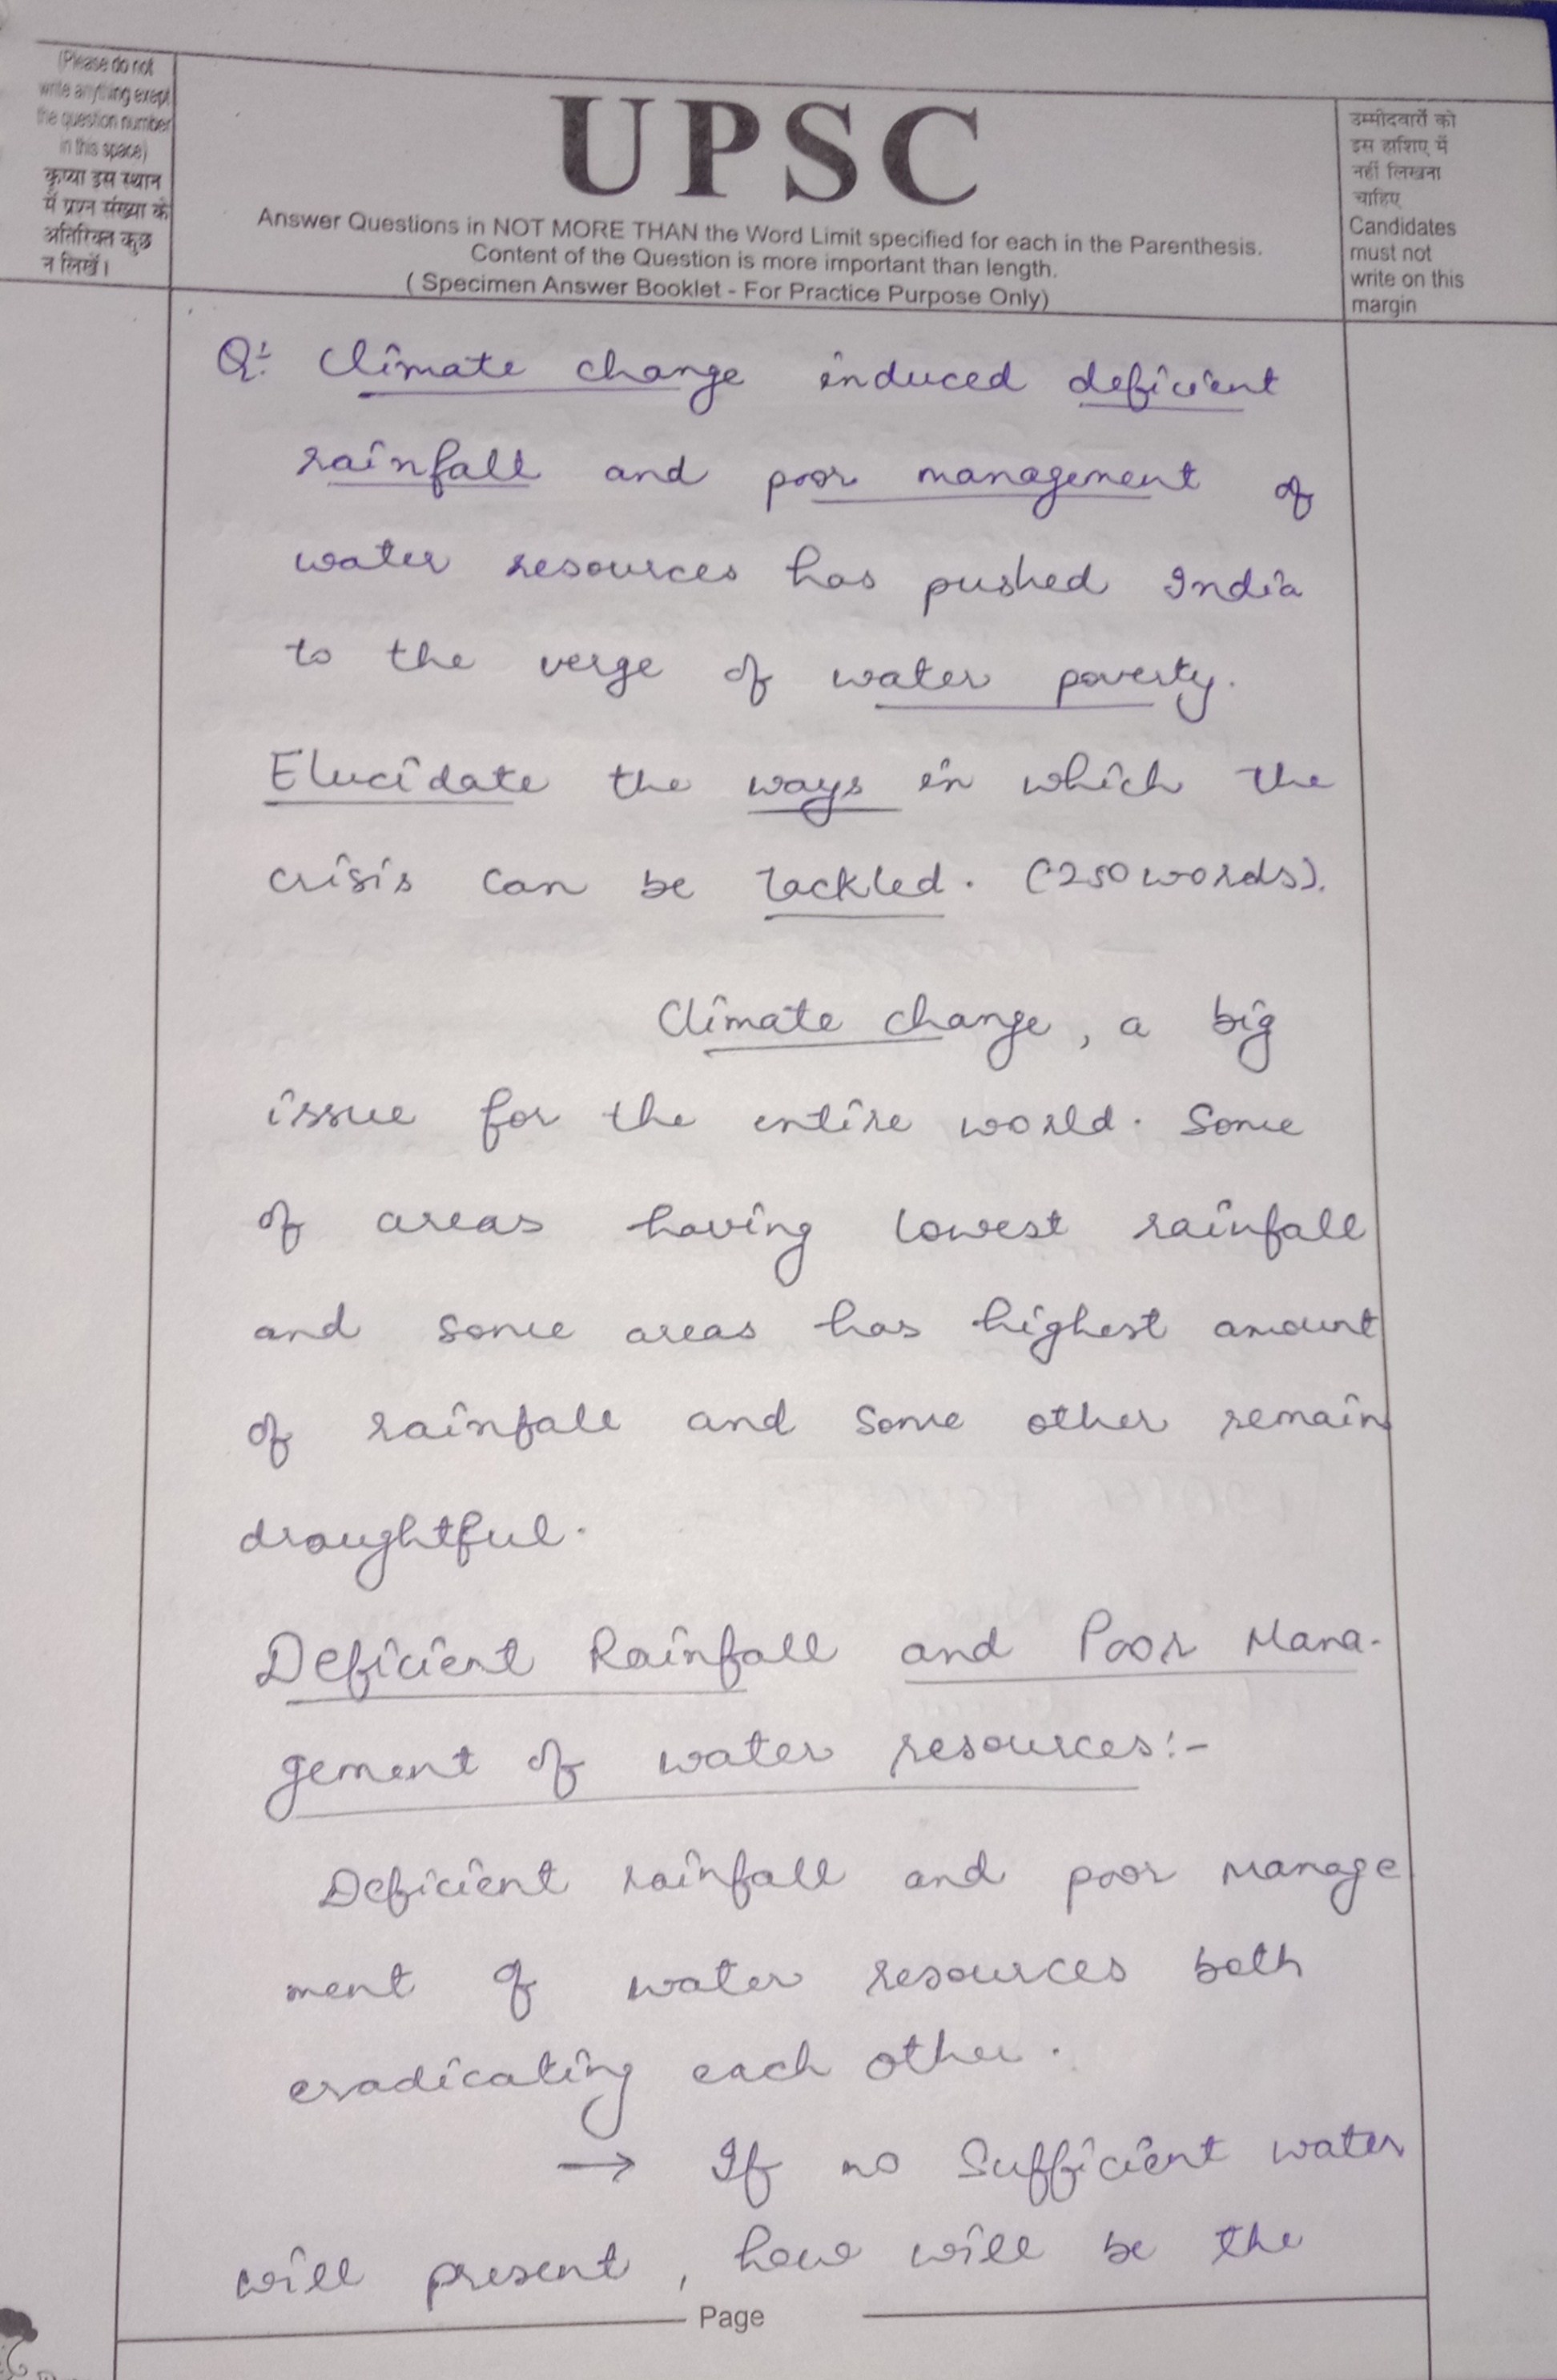 (Please do not
write anything exept
the question number
in this space)
कृप्या इस स्थान
में प्रश्न संख्या के
अतिरिक्त कुछ
न लिखें।
UPSC
Answer Questions in NOT MORE THAN the Word Limit specified for each in the Parenthesis.
Content of the Question is more important than length.
( Specimen Answer Booklet - For Practice Purpose Only)
उम्मीदवारों को
इस हाशिए में
नहीं लिखना
चाहिए
Candidates
must not
write on this
margin
Q:- Climate change induced deficient
rainfall and poor management of
water resources has pushed India
to the verge of water poverty.
Elucidate the ways in which the
crisis can be tackled. (250 words).
Climate change, a big
issue for the entire world. Some
of areas having lowest rainfall
and some areas has highest amount
of rainfall and some other remain
draughtful.
Deficient Rainfall and Poor Mana-
gement of water resources:-
Deficient rainfall and poor manage
ment of water resources both
eradicating each other.
→ If no sufficient water
will present, how will be the
Page